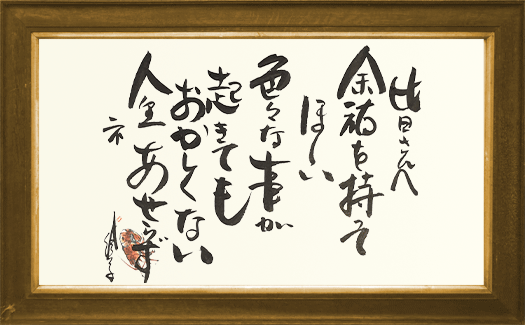 出田さんへ
余裕を持って
ほしい
色々な事が
起きても
おかしくない
人生あせらず
ネ